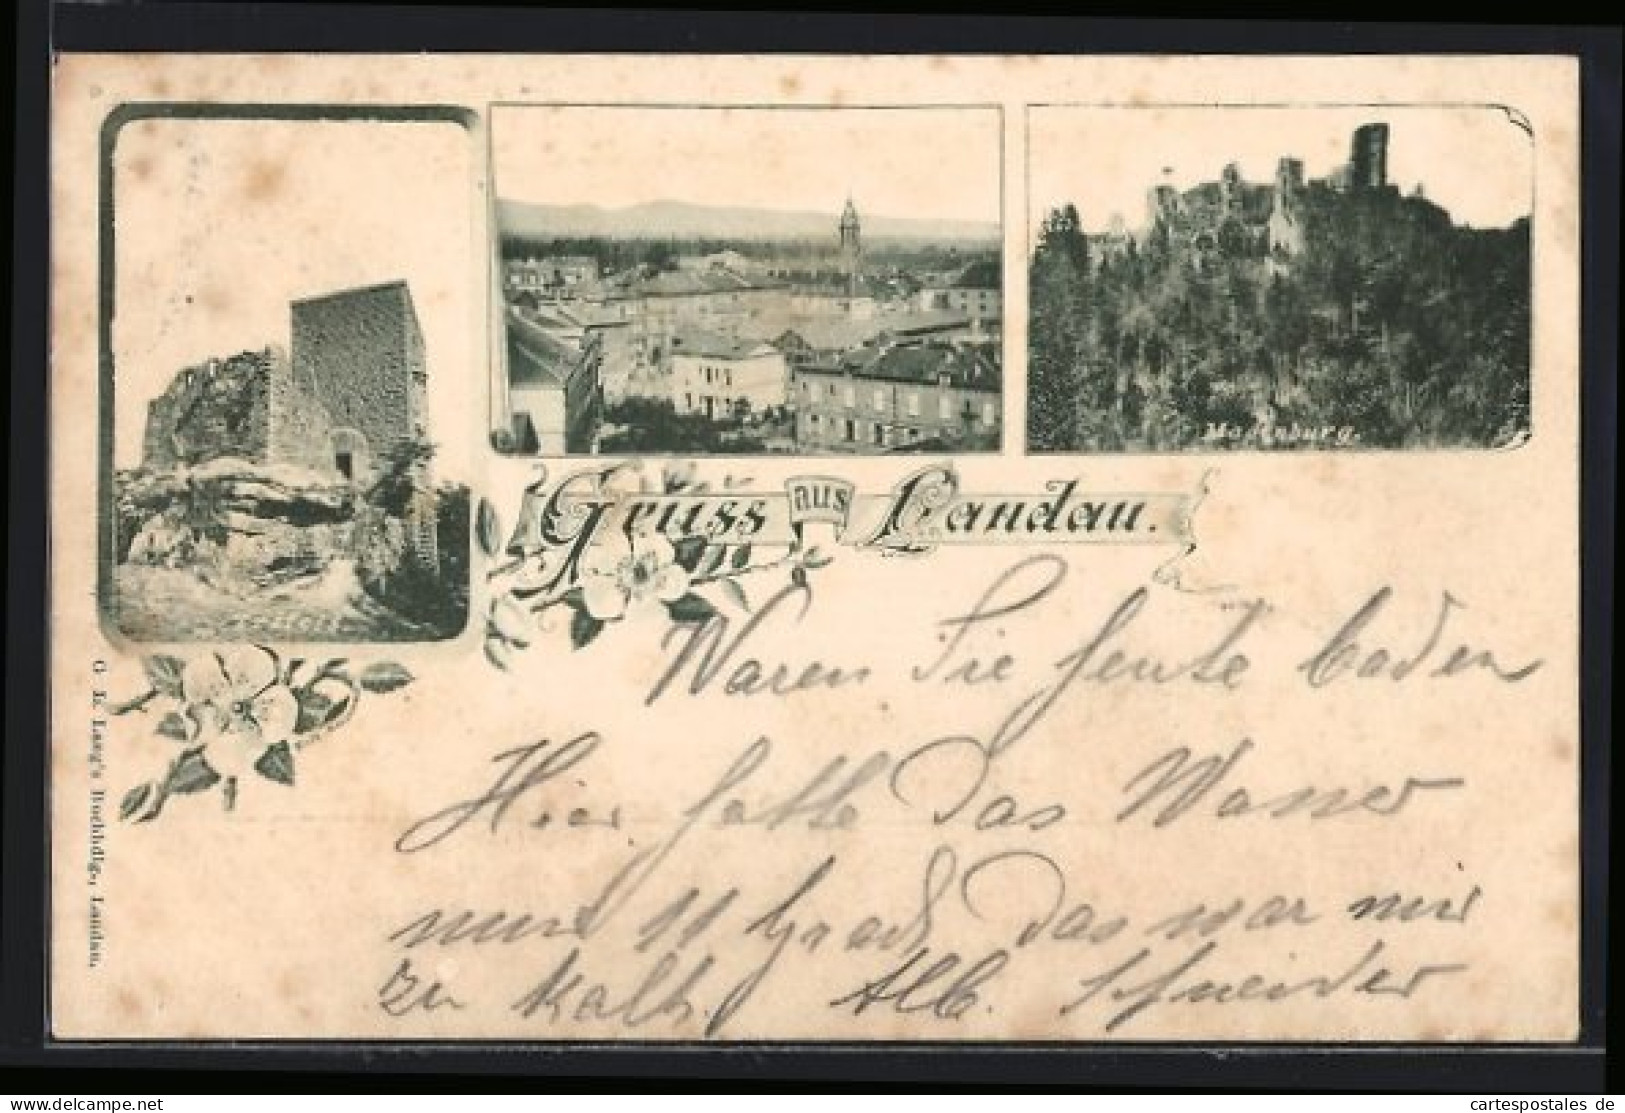 Madenburg.
Gruss aus Landau.
Waren Sie heute baden
Hier hatte das Wasser
nur 11 Grad das war mir
zu kalt. Alb. Schneider
G. L. Lang's Buchhdlg., Landau.
www.cartespostales.de
cartespostales de